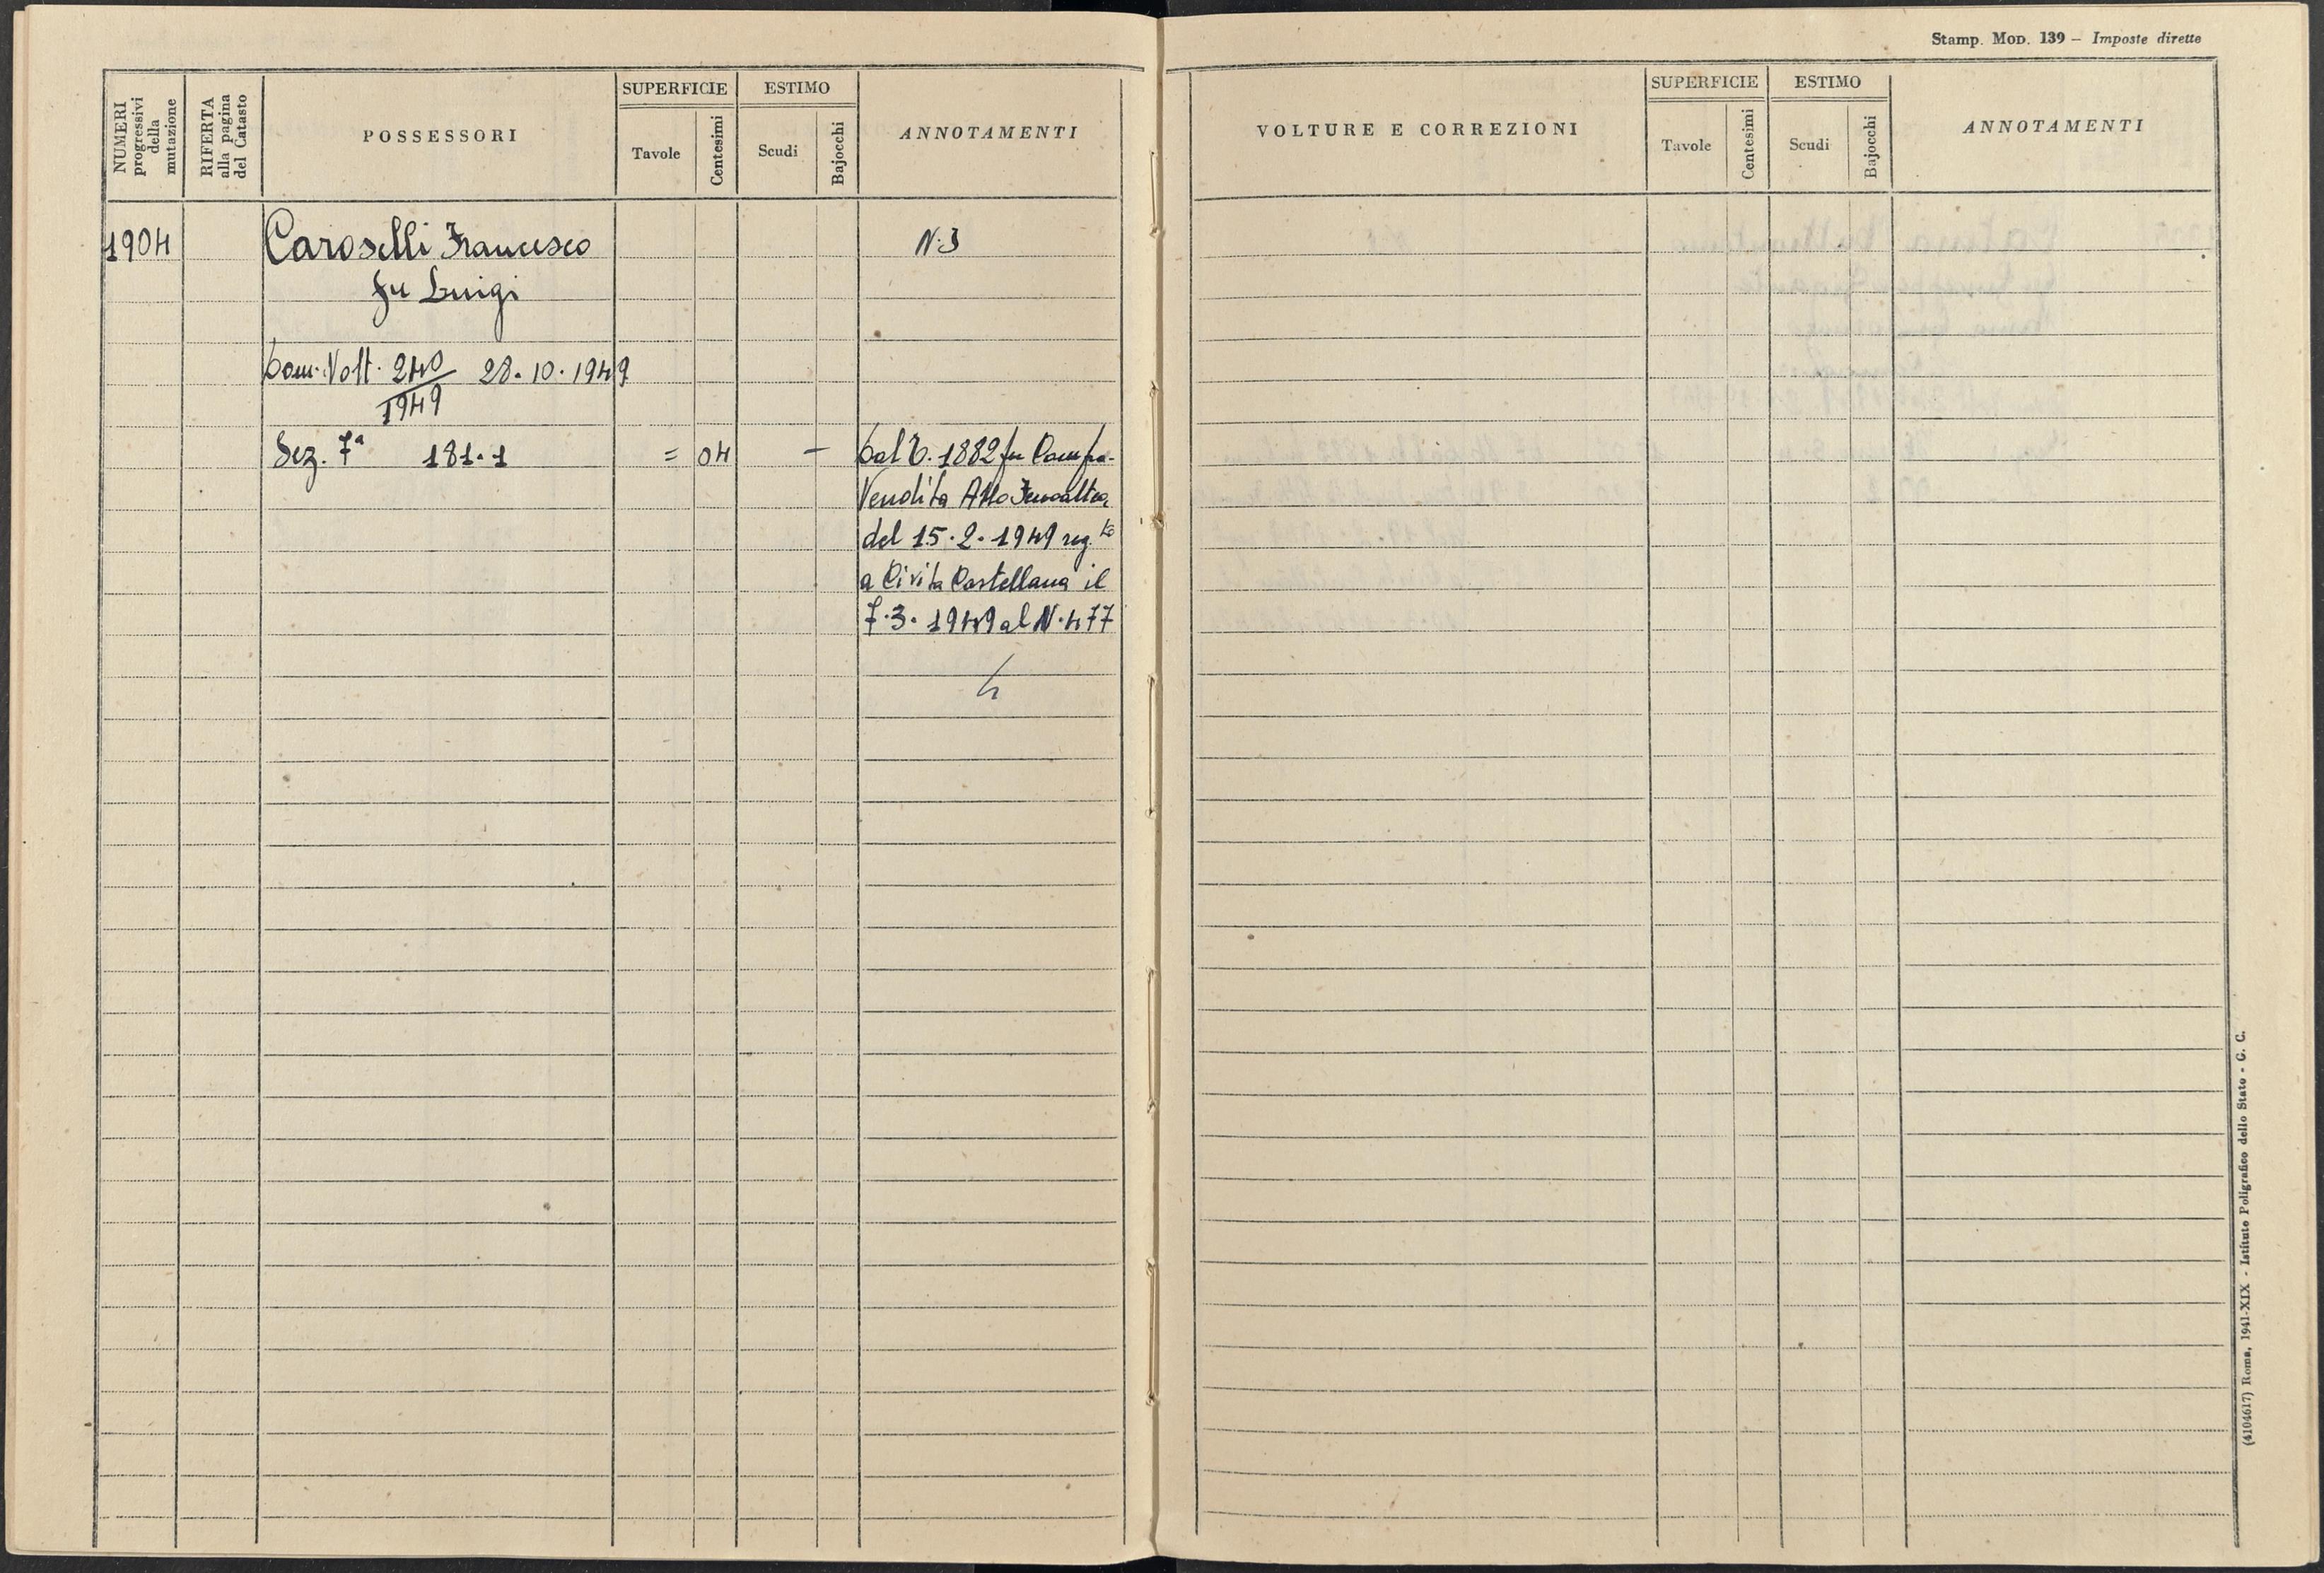 Stamp. Mod. 139 – Imposte dirette
NUMERI progressivi della mutazione
RIFERTA alla pagina del Catasto
POSSESSORI
SUPERFICIE
Tavole
Centesimi
ESTIMO
Scudi
Bajocchi
ANNOTAMENTI
VOLTURE E CORREZIONI
SUPERFICIE
Tavole
Centesimi
ESTIMO
Scudi
Bajocchi
ANNOTAMENTI
1904 Caroselli Francesco N. 3
fu Luigi
Dom. Volt. 240/1949 28.10.1949
Sez. 7a 181.1 = 04 –
Dal C. 1882 per Compra-
Vendita Atto
del 15.2.1949 reg.to
a Civita Castellana il
7.3.1949 al N. 477
(4104617) Roma, 1941-XIX - Istituto Poligrafico dello Stato - G. C.